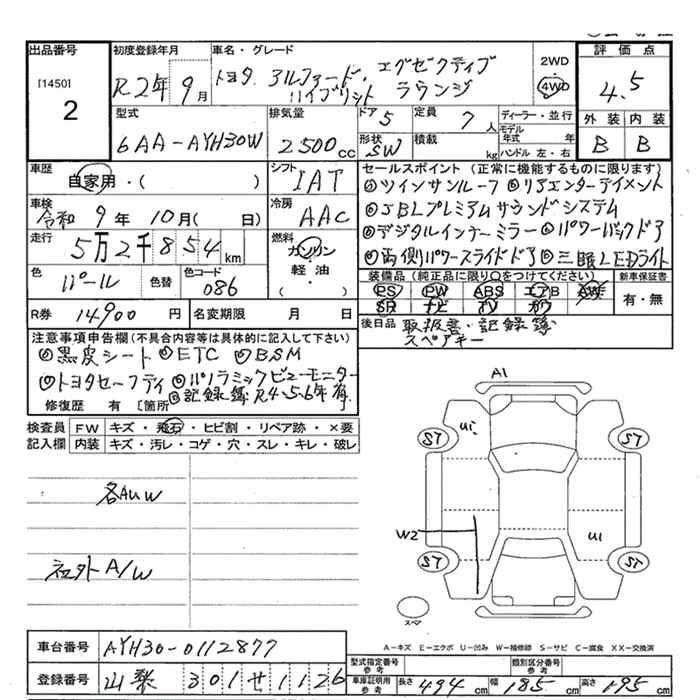 出品番号 初度登録年月 車名・グレード 2WD 評価点
[1450] R2年9月 トヨタ アルファード、エグゼクティブ 4WD 4.5
2 ハイブリット ラウンジ
型式 排気量 ドア 5 定員 7人 ディーラー・並行 外装 内装
6AA-AYH30W 2500cc 形状 SW 積載 kg モデル年式 年 B B
ハンドル 左・右
車歴 自家用・( ) シフト IAT セールスポイント(正常に機能するものに限ります)
①ツインサンルーフ ②リアエンターテイメント
車検 令和9年10月( 日) 冷房 AAC ③JBLプレミアムサウンドシステム
④デジタルインナーミラー ⑤パワーバックドア
走行 5万2千854km 燃料 ガソリン ⑥両側パワースライドドア ⑦三眼LEDライト
軽油・
・( )
色 パール 色替 色コード 086 装備品(純正品に限り○をつけてください) 新車保証書
PS PW ABS エアB AW 有・無
SR ナビ TV カワ
R券 14900円 名変期限 月 日 後日品 取扱書・記録簿
スペアキー
注意事項申告欄(不具合内容等は具体的に記入して下さい)
①黒皮シート ②ETC ③BSM
④トヨタセーフティ ⑤パノラミックビューモニター
⑥記録簿R4.5.6年有
修復歴 有 [箇所
検査員 FW キズ・飛石・ヒビ割・リペア跡・×要
記入欄 内装 キズ・汚レ・コゲ・穴・スレ・キレ・破レ
各AUW
社外A/W
A1
U1
ST
ST
W2
U1
ST
ST
スペア
A-キズ E-エクボ U-凹み W-補修跡 S-サビ C-腐食 XX-交換済
車台番号 AYH30-0112877
型式指定番号 参考 類別区分番号 参考
登録番号 山梨 301 せ 1126 車庫証明用 参考 長さ 494cm 幅 185cm 高さ 195cm